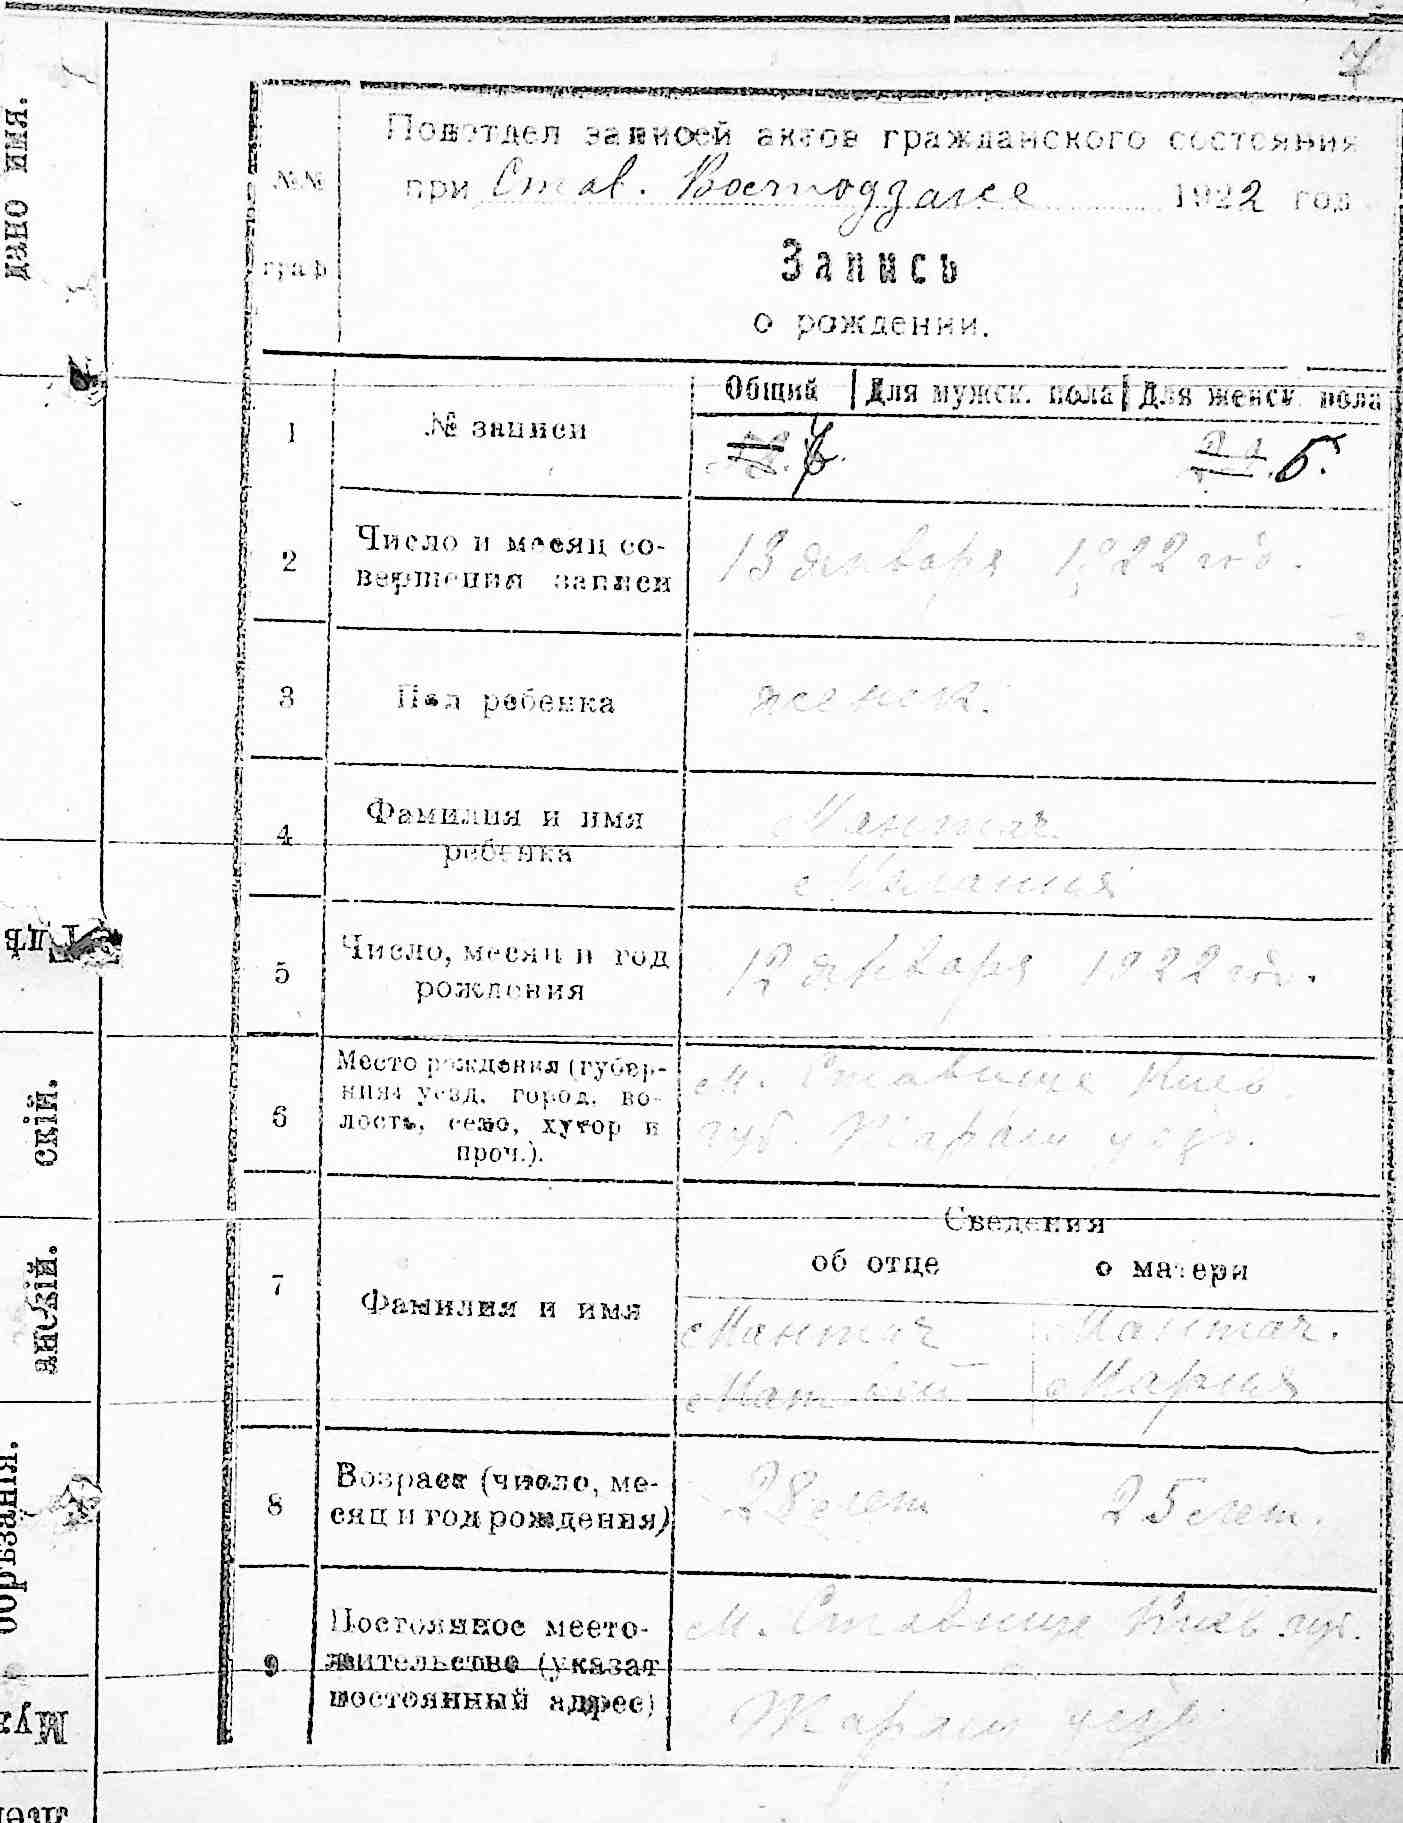 7
дано имя.
Подотдел записей актов гражданского состояния
№№ при Став. 1922 год
граф
Запись
о рождении.
Общий Для мужск. пола Для женск. пола
1 № записи 5.
2 Число и месяц со- 13 января 1922 год.
вершения записи
3 Пол ребенка женск.
4 Фамилия и имя Мантач.
ребенка Мелания
5 Число, месяц и год 12 января 1922 год.
рождения
6 Место рождения (губер- м. Ставище Киев.
ния, уезд, город, во- губ. уезд.
лость, село, хутор и
проч.).
скій.
Сведения
об отце о матери
7 Фамилия и имя Мантач Мантач.
Матвей Мария
анскій.
8 Возраст (число, ме- 28 лет 25 лет.
сяц и год рождения)
обрѣзанія.
9 Постоянное место- м. Ставище Киев. губ.
жительство (указат уезд
постоянный адрес)
Муж